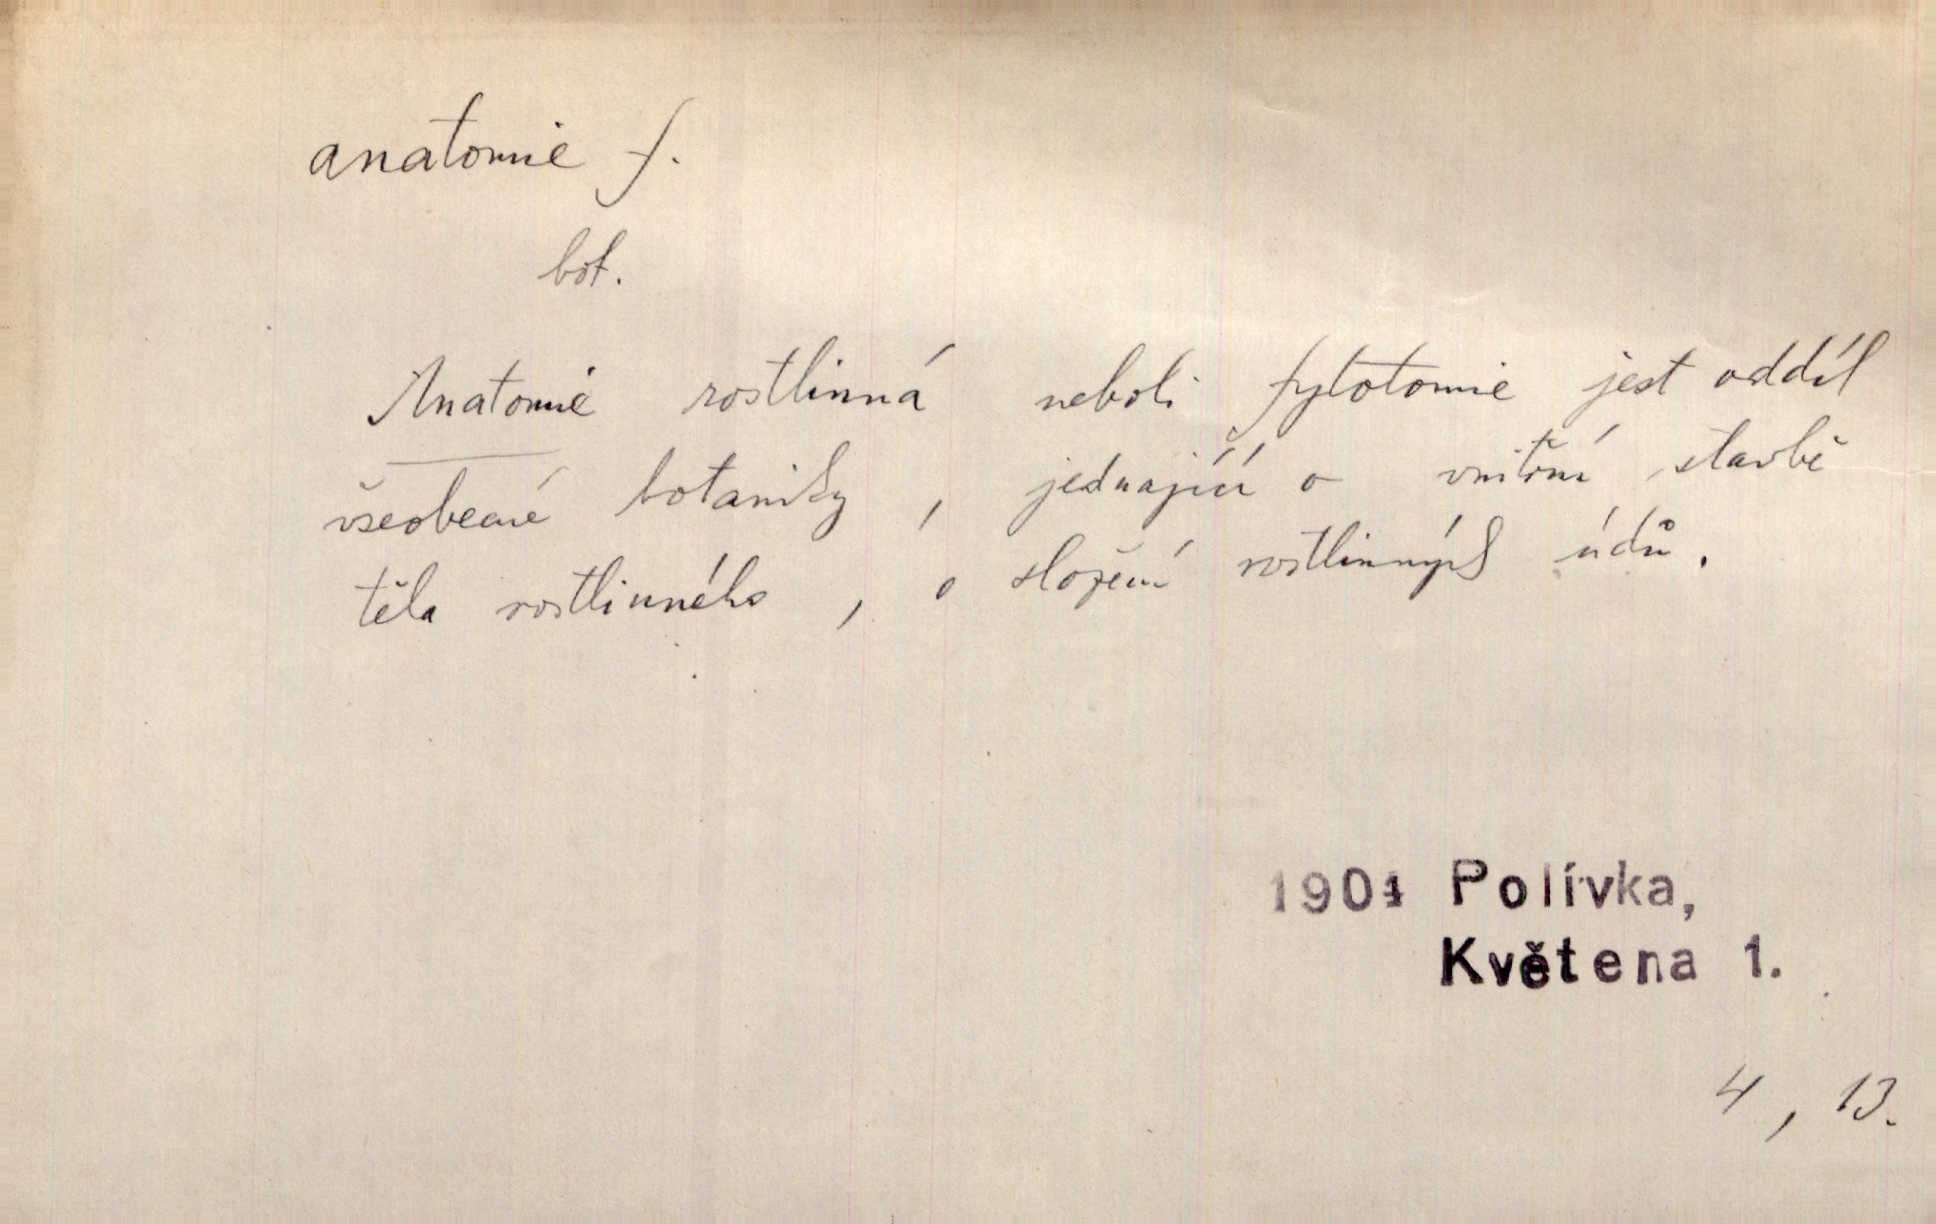 anatomie f.
bot.
Anatomie rostlinná neboli fytotomie jest oddíl
všeobecné botaniky, jednající o vnitřní stavbě
těla rostlinného, o složení rostlinných údů.
1901 Polívka,
Květena 1.
4, 13.